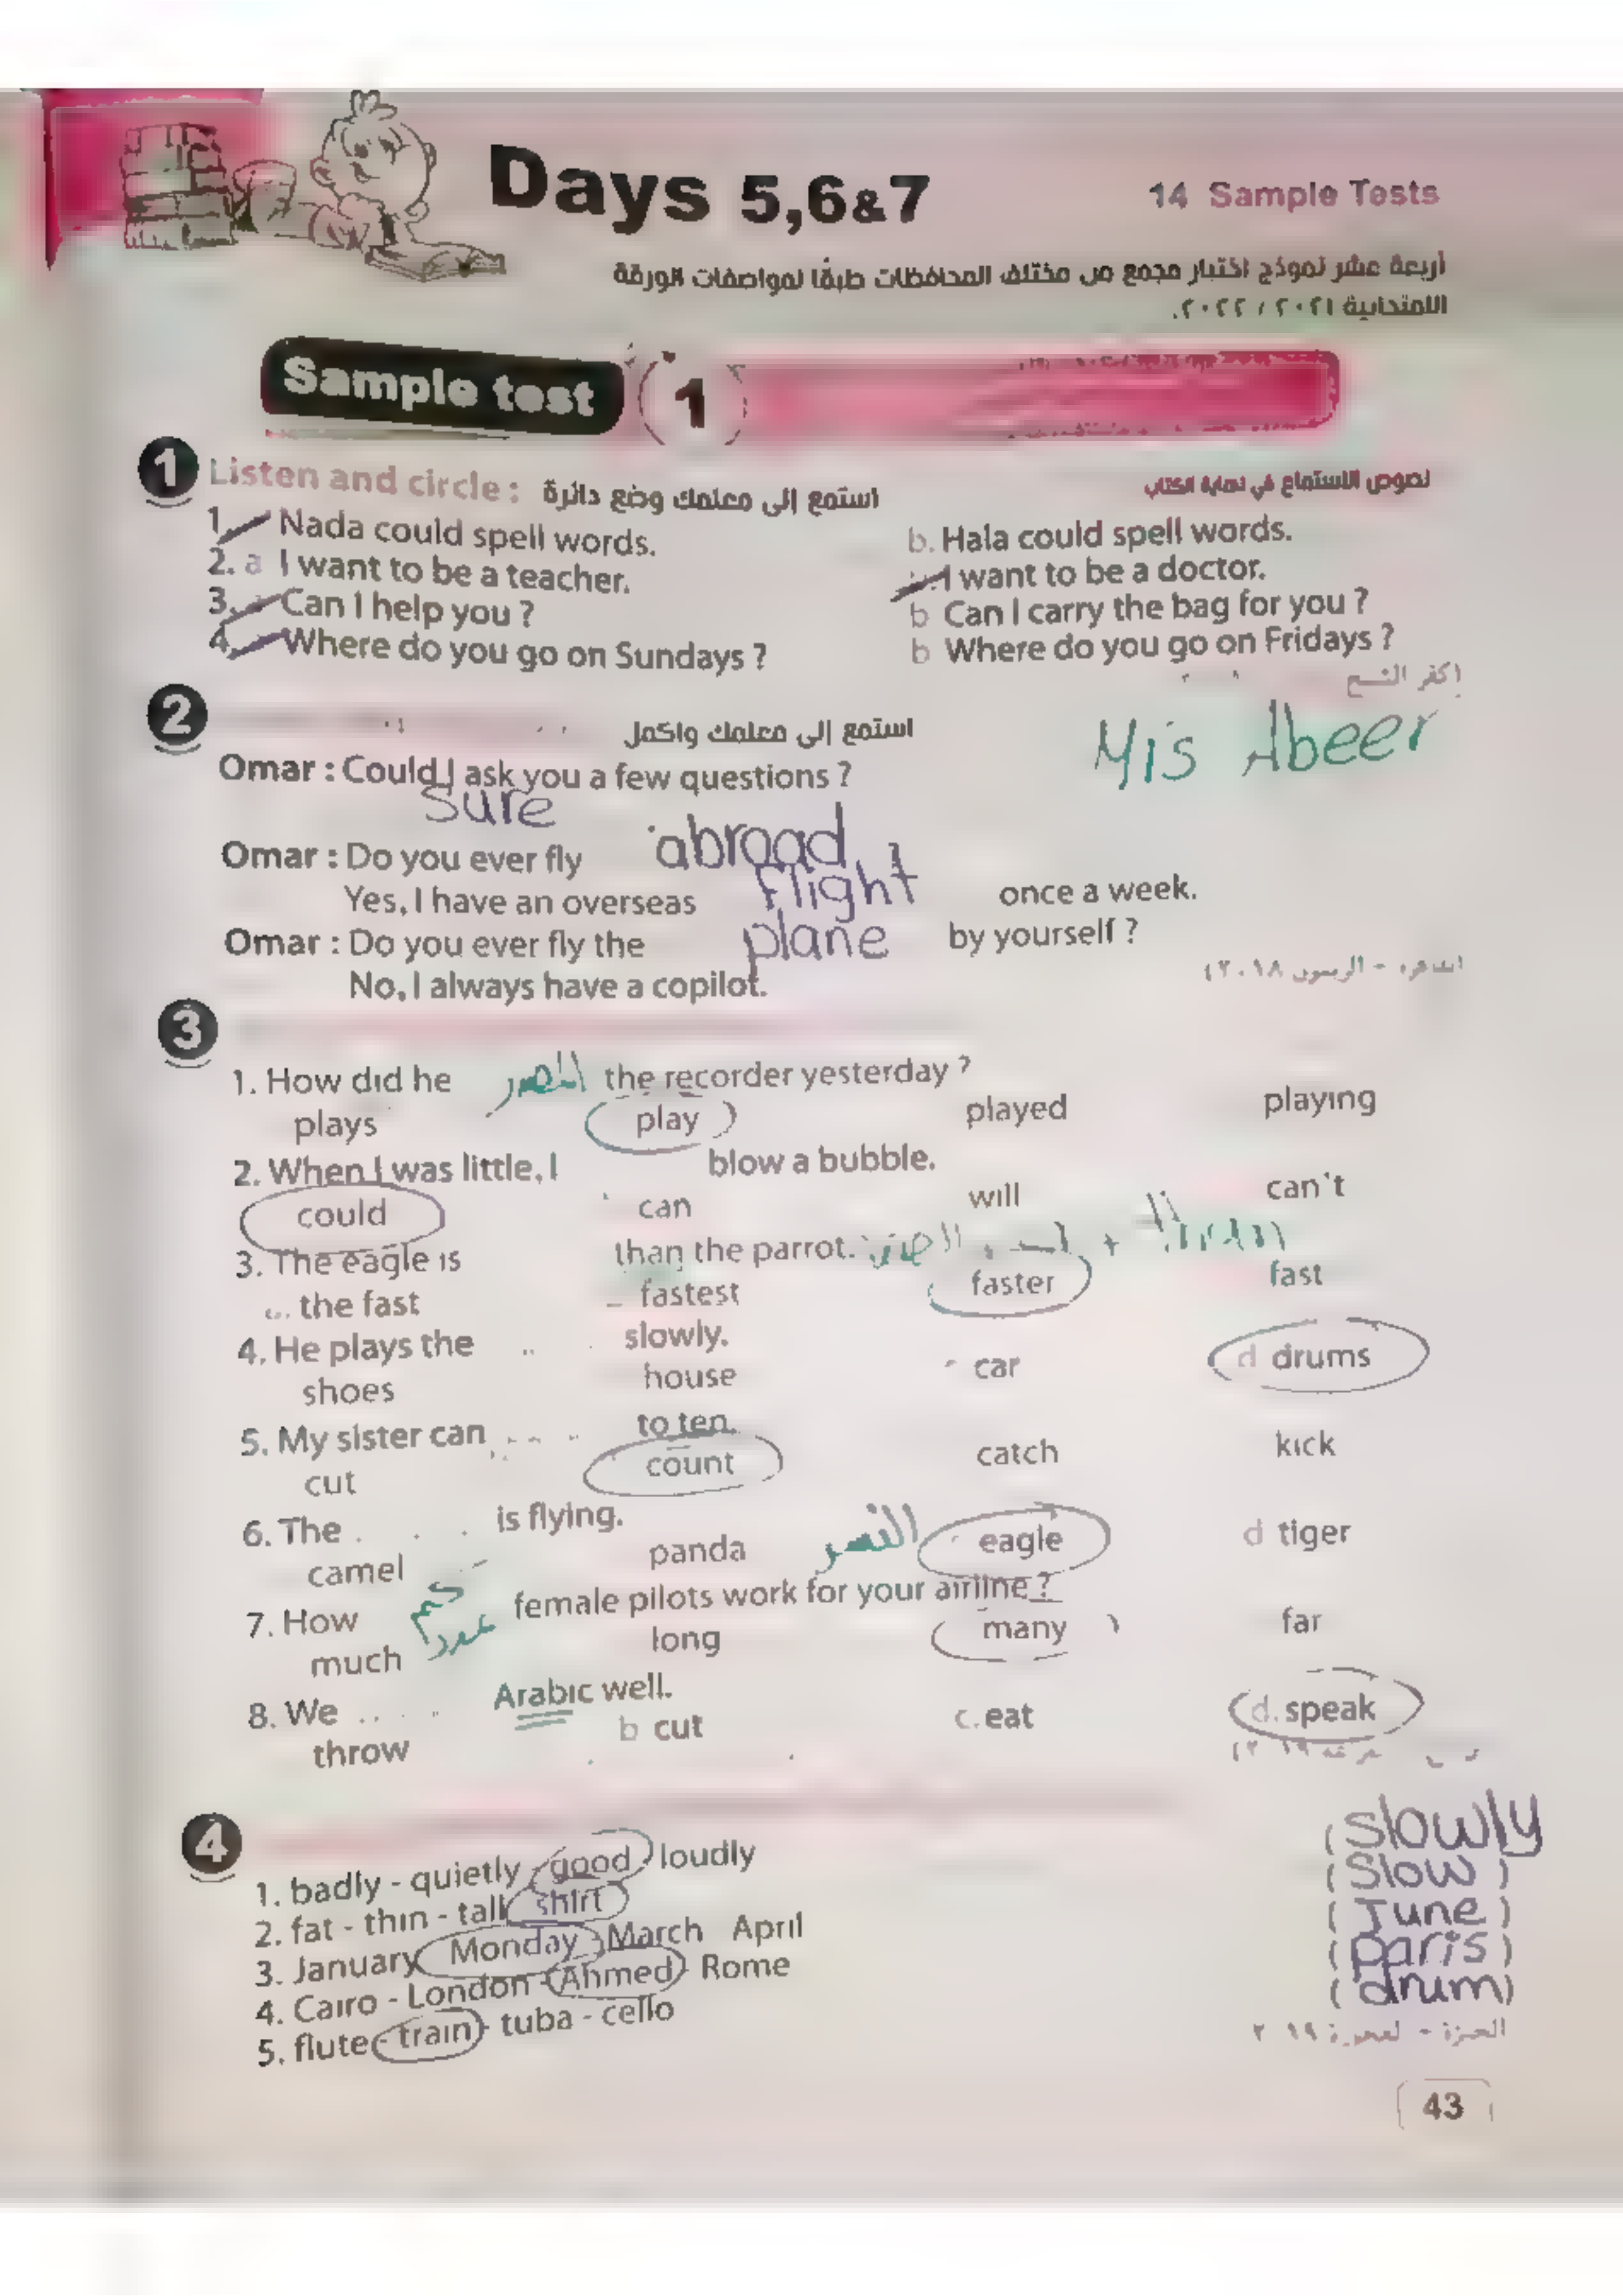 Days 5,6&7
14 Sample Tests
أربعة عشر نموذج اختبار مجمع من مختلف المحافظات طبقًا لمواصفات الورقة
الامتحانية ٢٠٢١ / ٢٠٢٢.
Sample test 1
1 Listen and circle : استمع إلى معلمك وضع دائرة
نصوص الاستماع في نهاية الكتاب
1. Nada could spell words. b. Hala could spell words.
2. a I want to be a teacher. I want to be a doctor.
3. Can I help you ? b Can I carry the bag for you ?
4. Where do you go on Sundays ? b Where do you go on Fridays ?
2 استمع إلى معلمك واكمل
Mis Abeer
Omar : Could I ask you a few questions ?
Sure
Omar : Do you ever fly abroad
Yes, I have an overseas flight once a week.
Omar : Do you ever fly the plane by yourself ?
No, I always have a copilot.
3
1. How did he the recorder yesterday ?
plays play played playing
2. When I was little, I blow a bubble.
could can will can't
3. The eagle is than the parrot.
the fast fastest faster fast
4. He plays the slowly.
shoes house car d drums
5. My sister can to ten.
cut count catch kick
6. The is flying.
camel panda النسر eagle d tiger
7. How كم عدد female pilots work for your airline ?
much long many far
8. We Arabic well.
throw b cut c. eat d. speak
4
1. badly - quietly - good loudly (slowly
2. fat - thin - tall shirt (slow)
3. January Monday March April (June)
4. Cairo - London - Ahmed - Rome (paris)
5. flute - train - tuba - cello (drum)
43